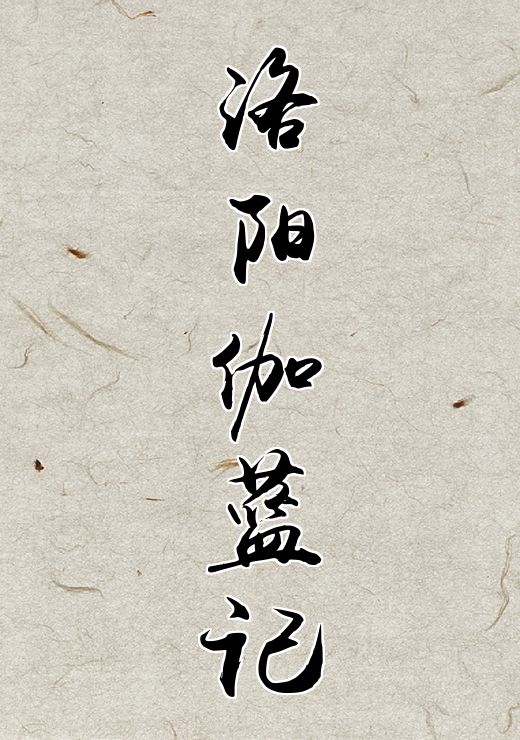 洛阳伽蓝记